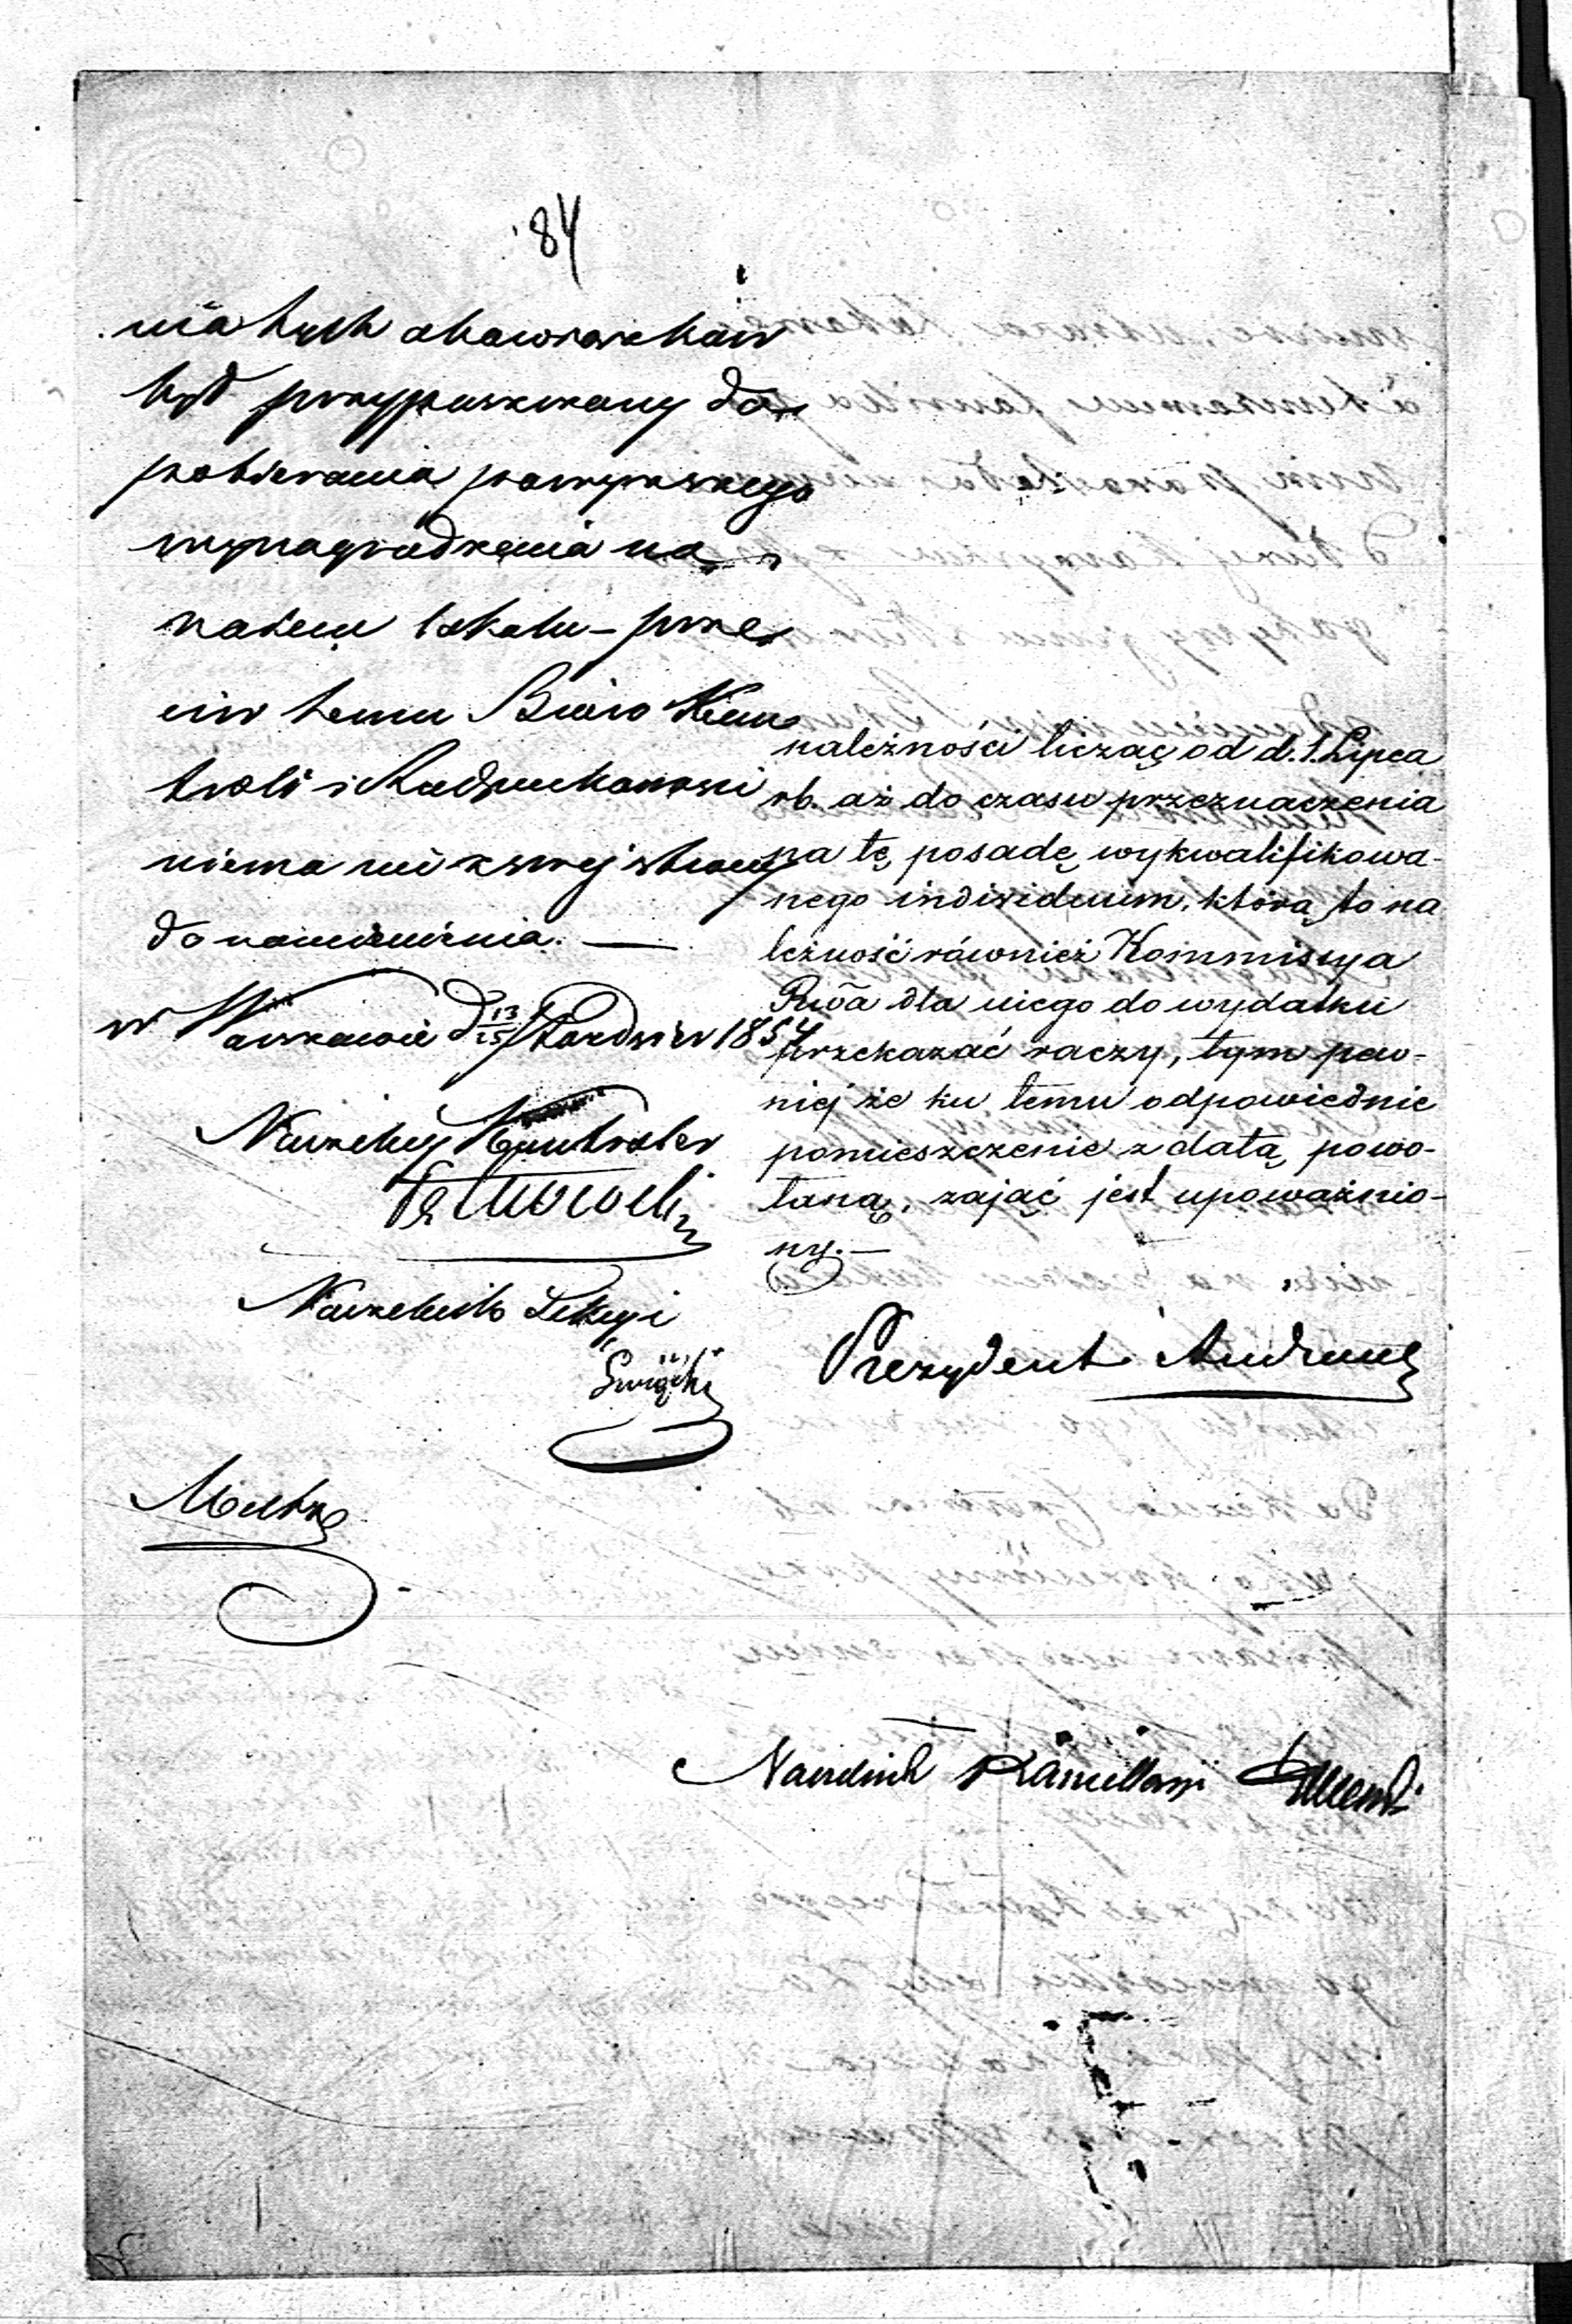 84
nia tych obowiązków
był przypuszczony do
pobierania powyższego
wynagrodzenia na
najem lokalu – prze
ciw temu Biuro Kon
troli i Rachunkowości
niema nic z swej strony
do namienienia. —
w Warszawie d 13/25 1854
Naczelny Kontroler
Naczelnik Sekcyi
Święcki
należności licząc od d. 1. Lipca
rb. aż do czasu przeznaczenia
na tę posadę wykwalifikowa-
nego indiwiduum, którą to na
leżność również Kommissya
Rwa dla niego do wydatku
przekazać raczy, tym pew-
niej że ku temu odpowiednie
pomieszczenie z datą powo-
łaną, zająć jest upoważnio-
ny.—
Prezydent Andrault
Naczelnik Kancellaryi